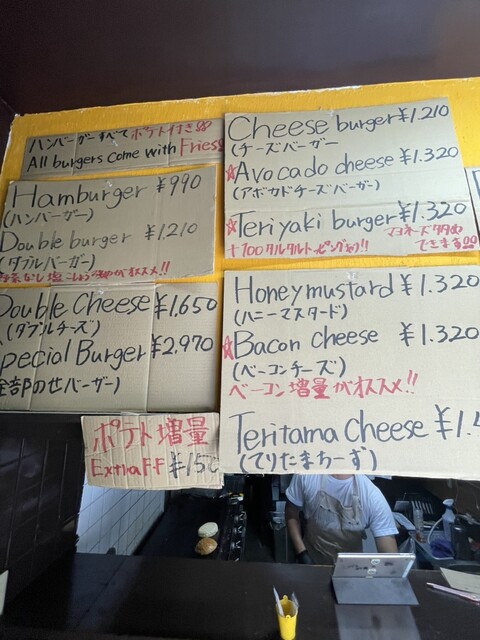 ハンバーガーすべてポテト付き
All burgers come with Fries
Hamburger ¥990
(ハンバーガー)
Double burger ¥1,210
(ダブルバーガー)
Double Cheese ¥1,650
(ダブルチーズ)
Special Burger ¥2,970
全部のせバーガー)
ポテト増量
Extra FF ¥150
Cheese burger ¥1,210
(チーズバーガー
☆Avocado cheese ¥1,320
(アボカドチーズバーガー)
☆Teriyaki burger ¥1,320
+100タルタルトッピング有り!! マヨネーズ多め
できます
Honey mustard ¥1,320
(ハニーマスタード)
☆Bacon cheese ¥1,320
(ベーコンチーズ)
ベーコン増量がオススメ!!
Teritama Cheese ¥1,4
(てりたまちーず)